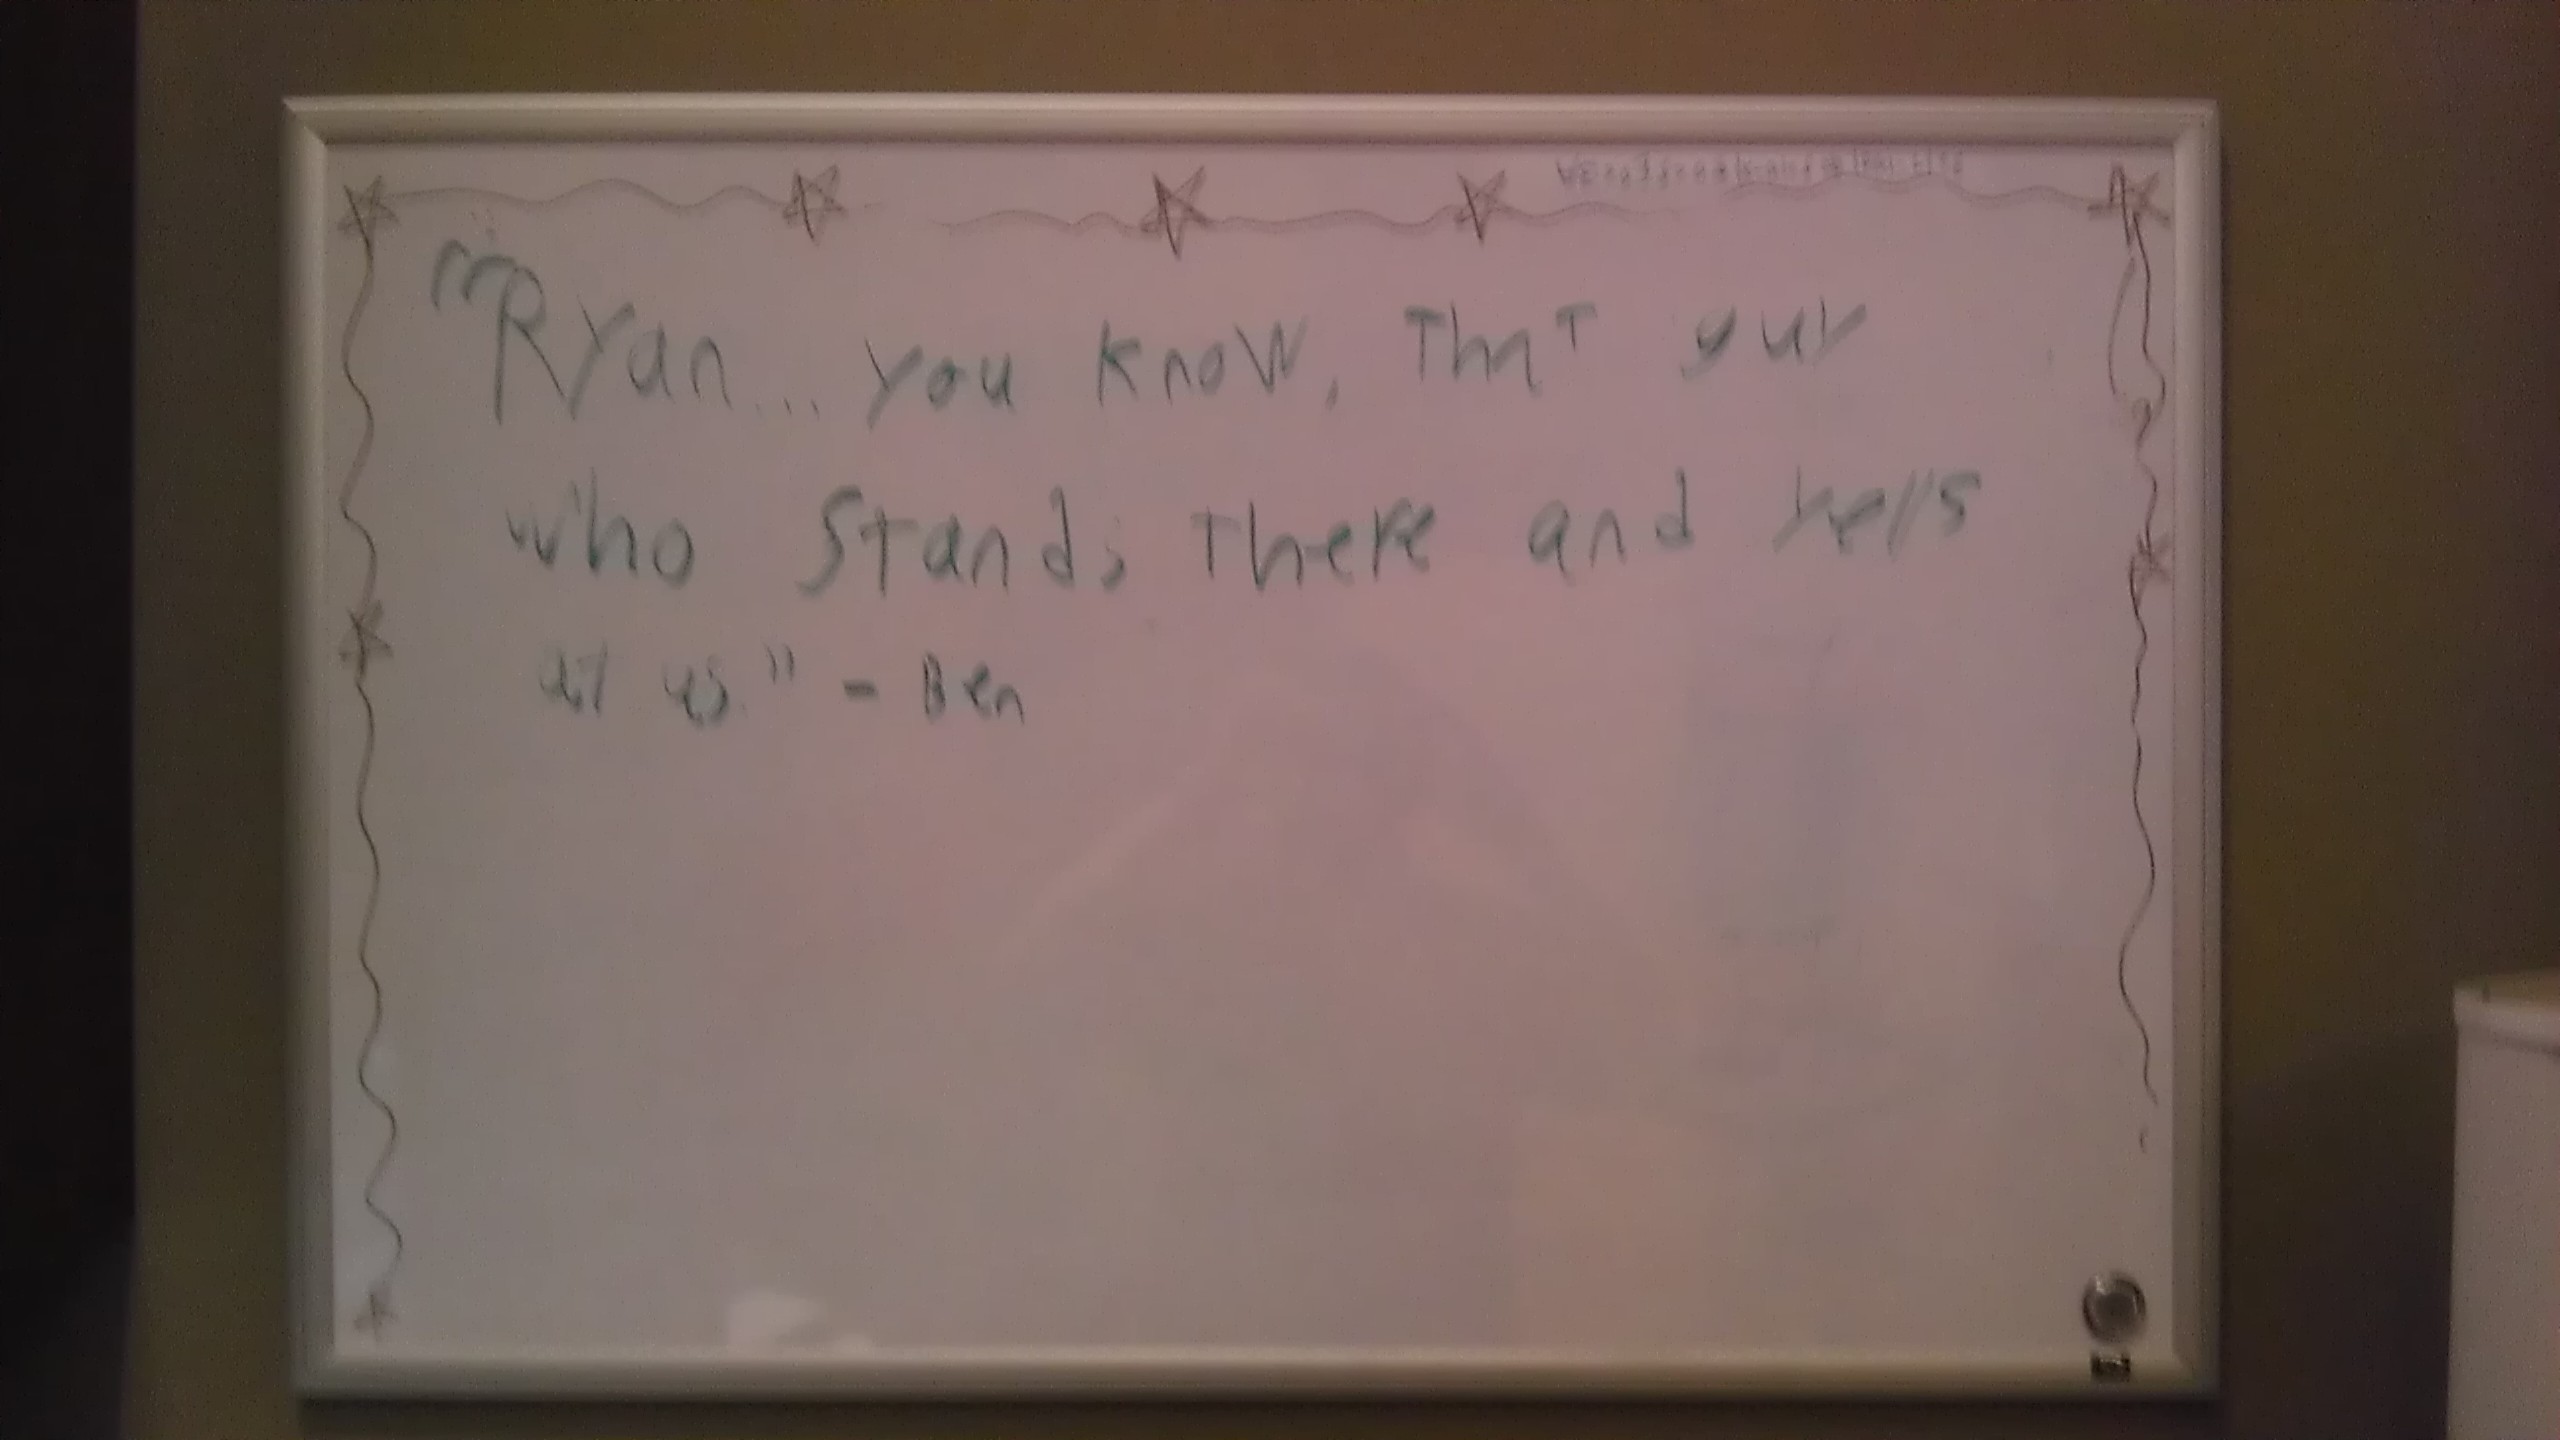 "Ryan... you know, That guy
who stands there and yells
at us" - Ben